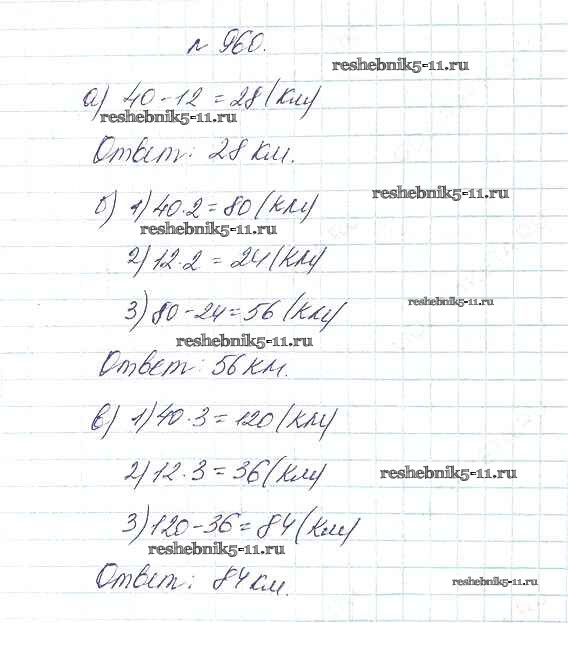 № 960.
reshebnik5-11.ru
а) 40 - 12 = 28 (км)
reshebnik5-11.ru
Ответ: 28 км.
reshebnik5-11.ru
б) 1) 40 · 2 = 80 (км)
reshebnik5-11.ru
2) 12 · 2 = 24 (км)
reshebnik5-11.ru
3) 80 - 24 = 56 (км)
reshebnik5-11.ru
Ответ: 56 км.
в) 1) 40 · 3 = 120 (км)
2) 12 · 3 = 36 (км)
reshebnik5-11.ru
3) 120 - 36 = 84 (км)
reshebnik5-11.ru
Ответ: 84 км.
reshebnik5-11.ru